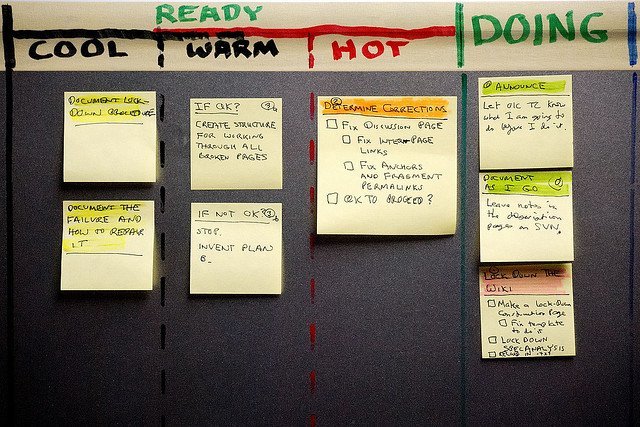 READY
DOING
COOL
WARM
HOT
DOCUMENT LOCK-
DOWN PROCEDURE
DOCUMENT THE
FAILURE AND
HOW TO REPAIR
IT
IF OK?
CREATE STRUCTURE
FOR WORKING
THROUGH ALL
BROKEN PAGES
IF NOT OK?
STOP.
INVENT PLAN
B.
DETERMINE CORRECTIONS
FIX DISCUSSION PAGE
FIX INTERPAGE
LINKS
FIX ANCHORS
AND FRAGMENT
PERMALINKS
OK TO PROCEED?
ANNOUNCE
Let OLC TZ know
what I am going to
do before I do it.
DOCUMENT
AS I GO
Leave notes in
the observations
pages on SVN.
LOCK DOWN THE
WIKI
Make a lock-Down
Construction Page
Fix template
to do is
LOCK DOWN